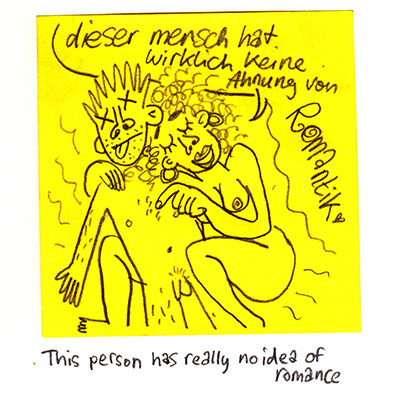 dieser mensch hat
wirklich keine
Ahnung von
Romantik
This person has really no idea of
romance